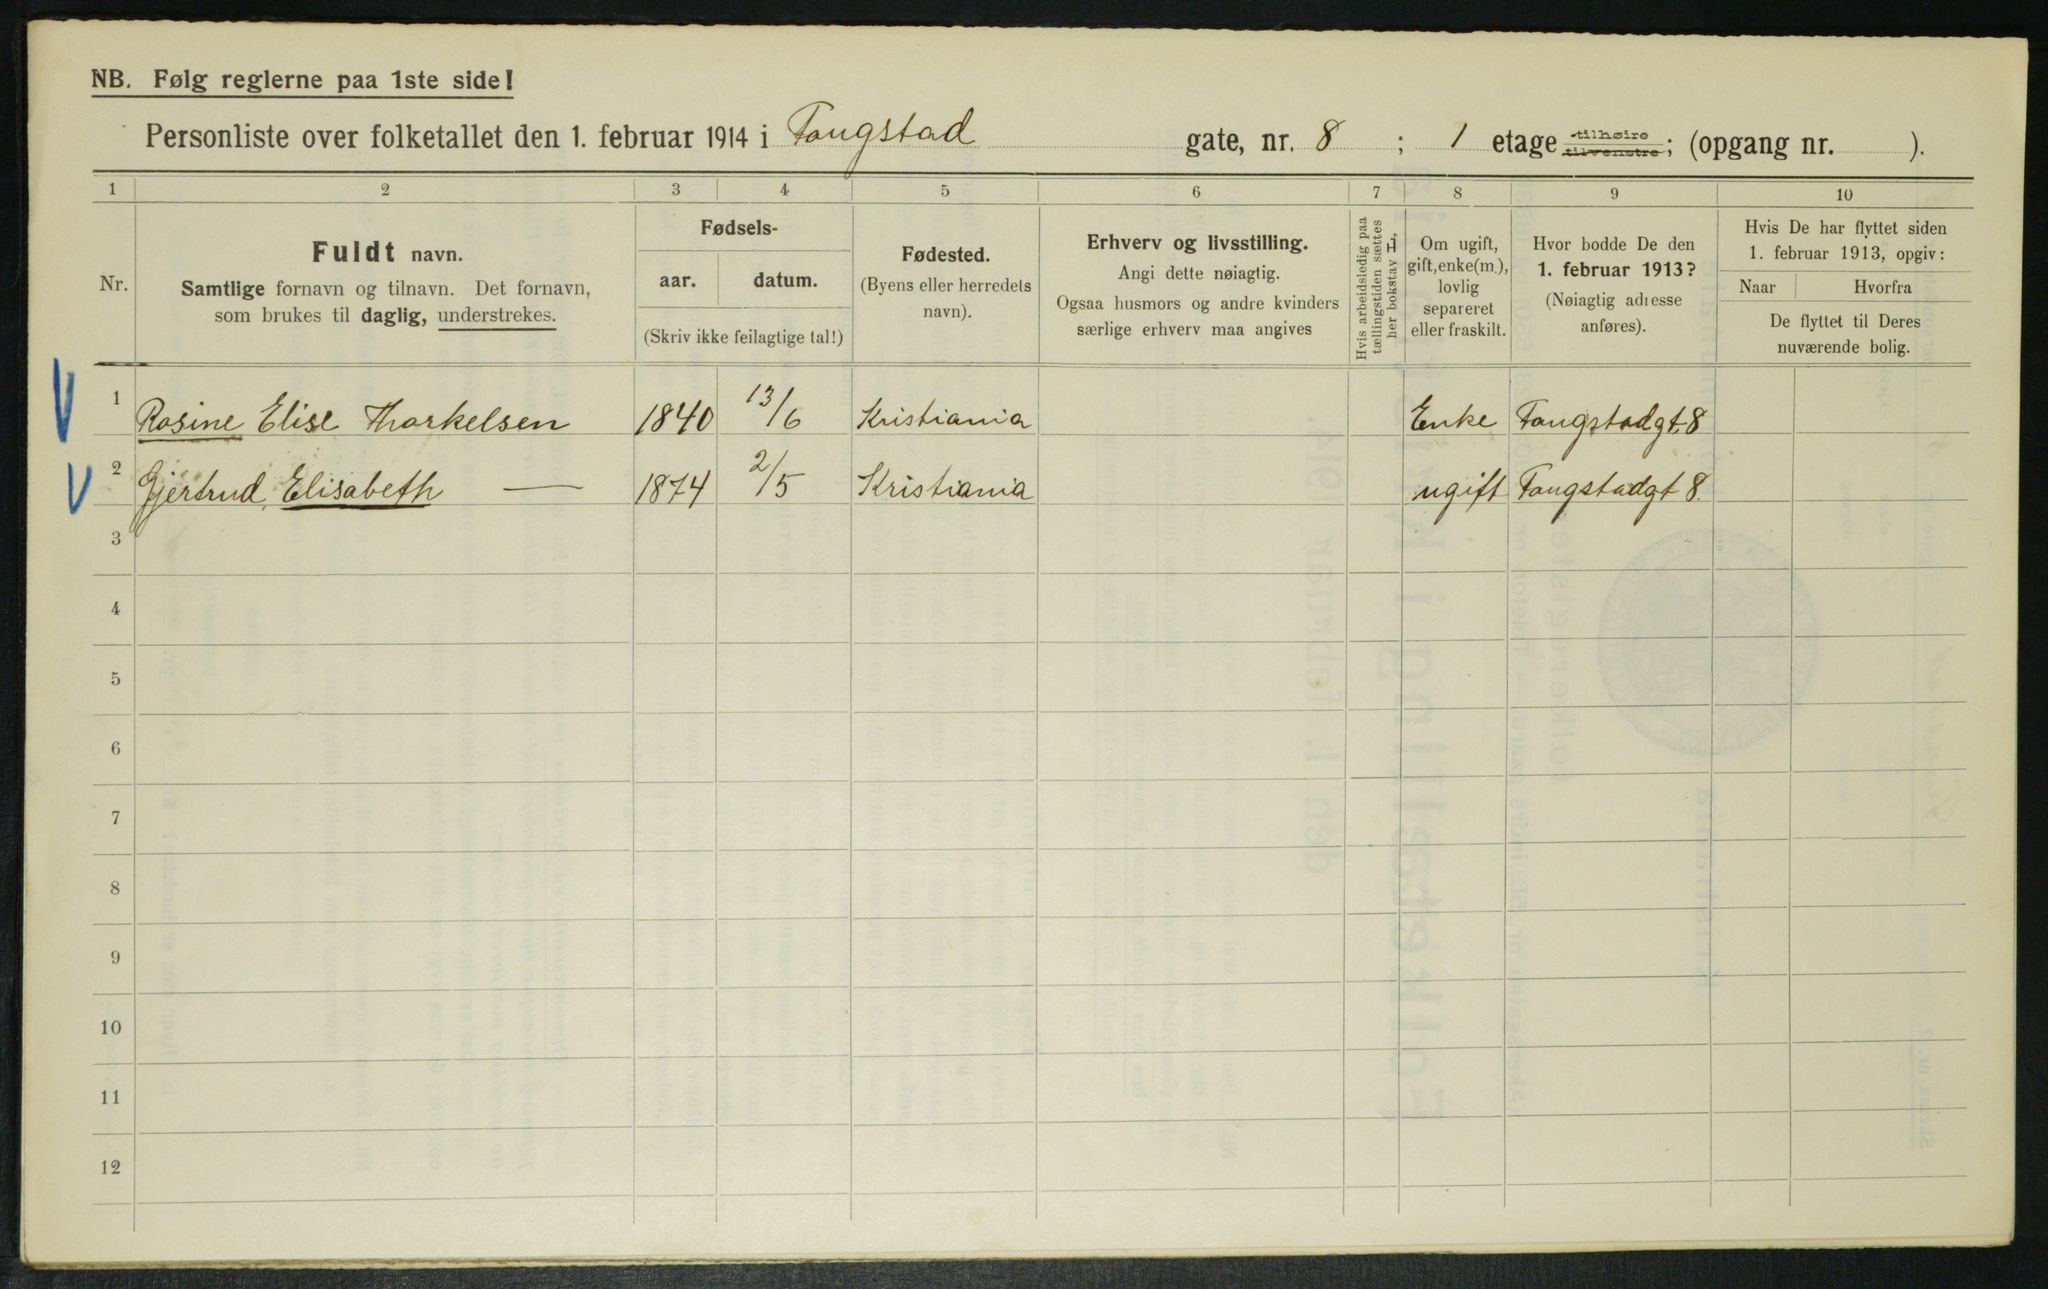 NB. Følg reglerne paa 1ste side!
Personliste over folketallet den 1. februar 1914 i Fougstad gate, nr. 8 ; 1 etage tilhøire tilvenstre; (opgang nr. ).
1 2 3 4 5 6 7 8 9 10
Nr.
Fuldt navn.
Samtlige fornavn og tilnavn. Det fornavn,
som brukes til daglig, understrekes.
Fødsels-
aar. datum.
(Skriv ikke feilagtige tal!)
Fødested.
(Byens eller herredets
navn).
Erhverv og livsstilling.
Angi dette nøiagtig.
Ogsaa husmors og andre kvinders
særlige erhverv maa angives
Hvis arbeidsledig paa
tællingstiden sættes
her bokstav L,
Om ugift,
gift, enke(m.),
lovlig
separeret
eller fraskilt.
Hvor bodde De den
1. februar 1913?
(Nøiagtig adresse
anføres).
Hvis De har flyttet siden
1. februar 1913, opgiv:
Naar Hvorfra
De flyttet til Deres
nuværende bolig.
1 Rosine Elise Thorkelsen 1840 13/6 Kristiania Enke Fougstadgt. 8
2 Gjertrud Elisabeth — 1874 2/5 Kristiania ugift Fougstadgt 8.
3
4
5
6
7
8
9
10
11
12